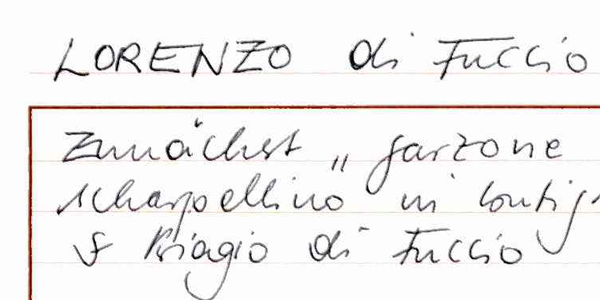 LORENZO di Fuccio
Zunächst „ garzone
scharpellino in
S Biagio di Fuccio